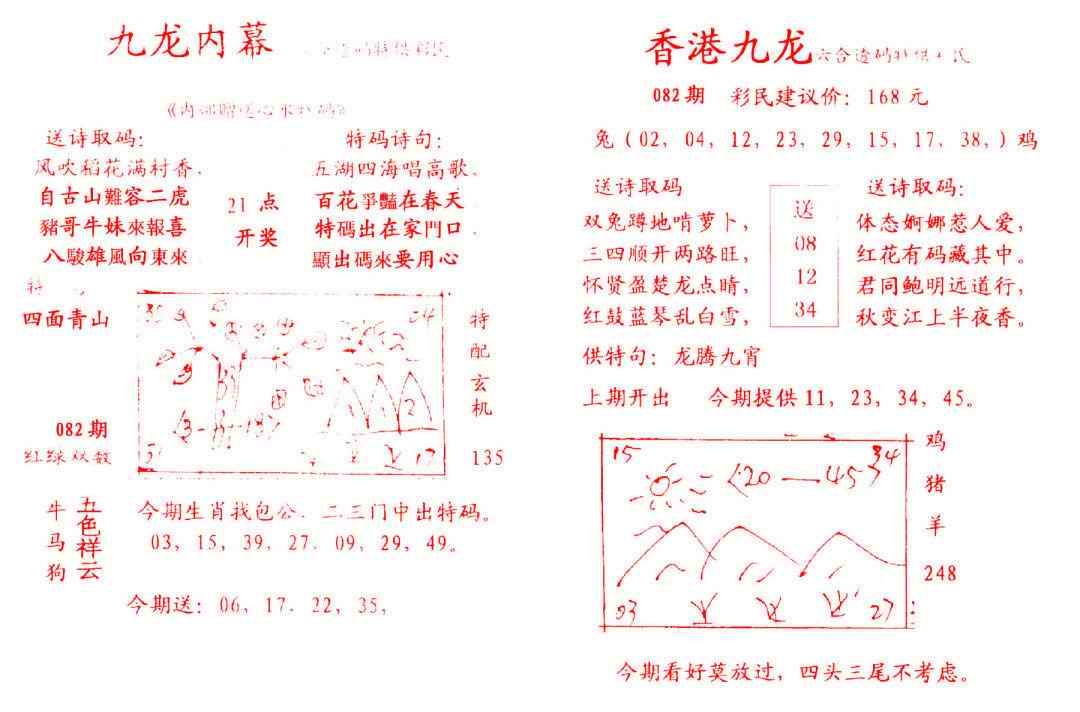 九龙内幕
送诗取码：
风吹稻花满村香．
自古山難容二虎
豬哥牛妹來報喜
八駿雄風向東來．
21 点
开奖
特码诗句：
五湖四海唱高歌．
百花爭豔在春天
特碼出在家門口．
顯出碼來要用心
四面青山
082期
红绿双数
34
17
特
配
玄
机
135
牛
马
狗
五色祥云
今期生肖找包公．二三门中出特码。
03，15，39，27．09，29，49。
今期送：06，17．22，35，
香港九龙
六合透码特供彩民
082期 彩民建议价：168 元
兔（02，04，12，23，29，15，17，38，）鸡
送诗取码
双兔蹲地啃萝卜，
三四顺开两路旺，
怀贤盈楚龙点睛，
红鼓蓝琴乱白雪，
送
08
12
34
送诗取码：
体态婀娜惹人爱，
红花有码藏其中。
君同鲍明远道行，
秋变江上半夜香。
供特句：龙腾九宵
上期开出 今期提供11，23，34，45。
15
34
20—45
03
27
鸡
猪
羊
248
今期看好莫放过，四头三尾不考虑。